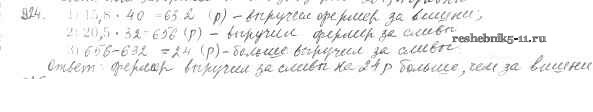 924. 1) 15,8 · 40 = 632 (р) – выручил фермер за вишни;
2) 20,5 · 32 = 656 (р) – выручил фермер за сливы
3) 656 – 632 = 24 (р) – больше выручил за сливы.
reshebnik5-11.ru
Ответ: фермер выручил за сливы на 24 р больше, чем за вишни